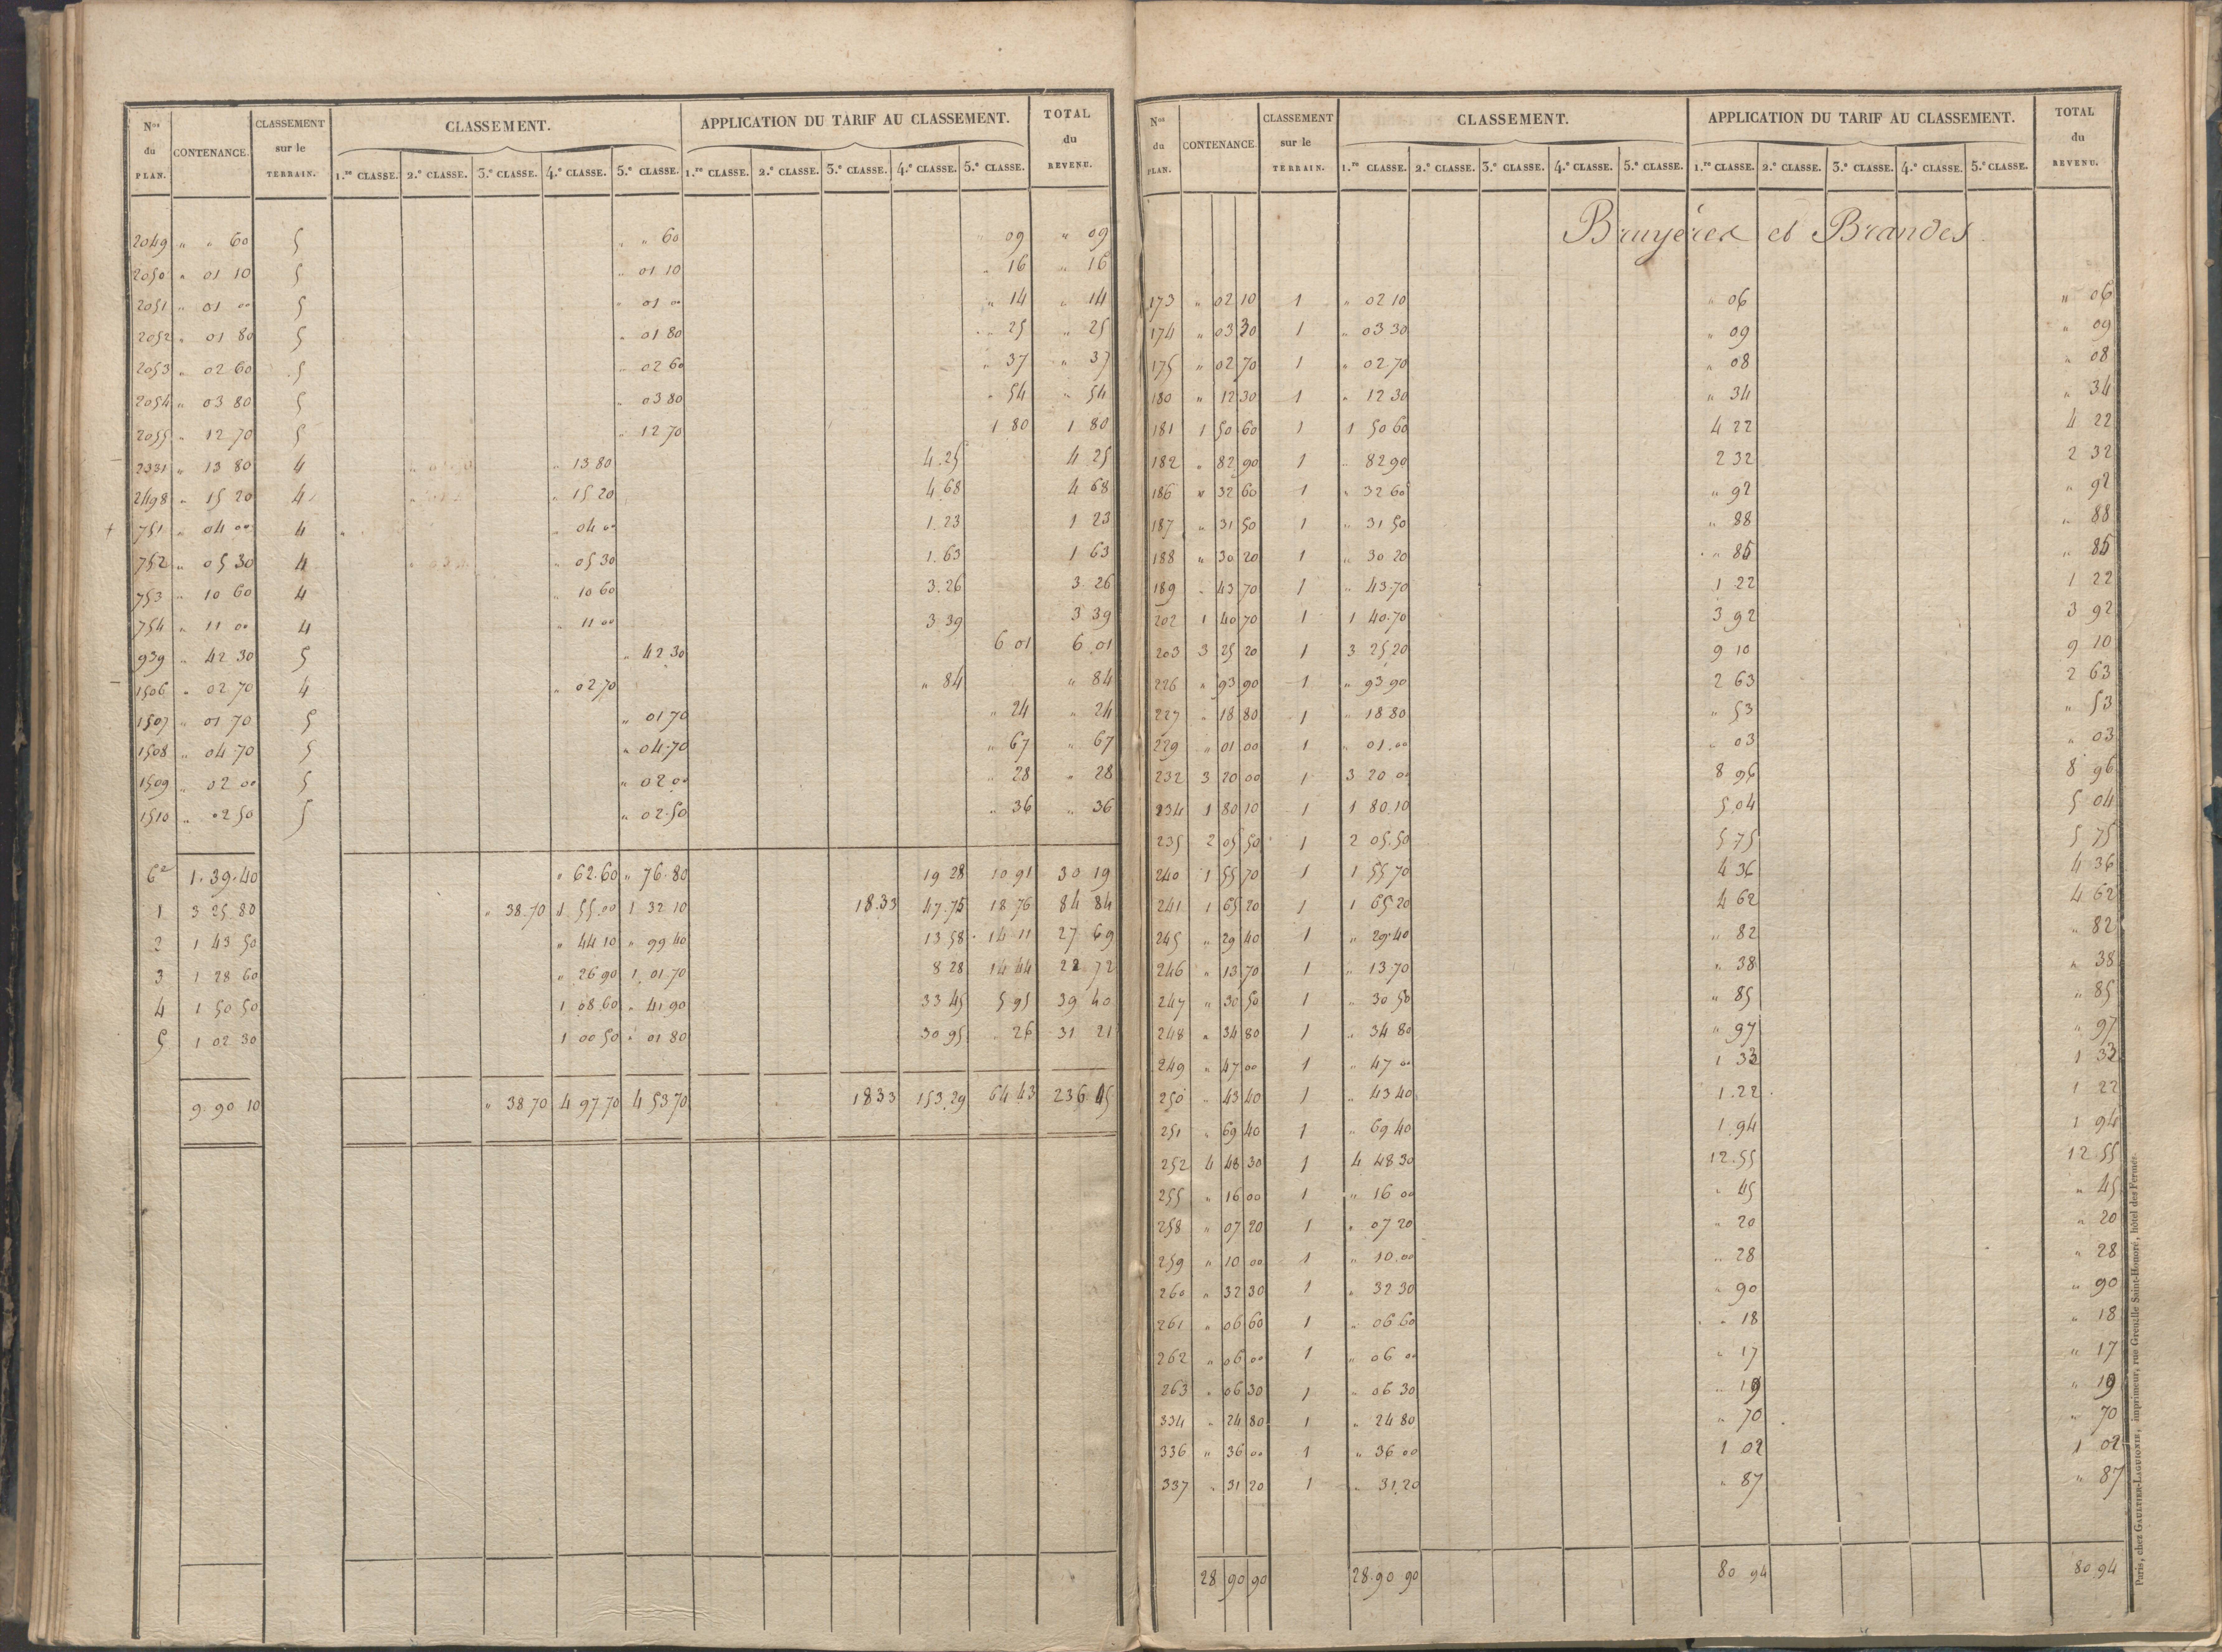 Nos du PLAN. CONTENANCE. CLASSEMENT sur le TERRAIN. CLASSEMENT. APPLICATION DU TARIF AU CLASSEMENT. TOTAL du REVENU.
1.re CLASSE. 2.e CLASSE. 3.e CLASSE. 4.e CLASSE. 5.e CLASSE. 1.re CLASSE. 2.e CLASSE. 3.e CLASSE. 4.e CLASSE. 5.e CLASSE.
2049 " " 60 5 " " 60 " 09 " 09
2050 " 01 10 5 " 01 10 " 16 " 16
2051 " 01 00 5 " 01 00 " 14 " 14
2052 " 01 80 5 " 01 80 " 25 " 25
2053 " 02 60 5 " 02 60 " 37 " 37
2054 " 03 80 5 " 03 80 " 54 " 54
2055 " 12 70 5 " 12 70 1 80 1 80
2331 " 13 80 4 " 13 80 4.25 4 25
2498 " 15 20 4 " 15 20 4.68 4 68
+ 751 " 04 00 4 " 04 00 1.23 1 23
752 " 05 30 4 " 05 30 1.63 1 63
753 " 10 60 4 " 10 60 3.26 3 26
754 " 11 00 4 " 11 00 3 39 3 39
939 " 42 30 5 " 42 30 6 01 6 01
1506 " 02 70 4 " 02 70 " 84 " 84
1507 " 01 70 5 " 01 70 " 24 " 24
1508 " 04 70 5 " 04 70 " 67 " 67
1509 " 02 00 5 " 02 00 " 28 " 28
1510 " 02 50 5 " 02 50 " 36 " 36
6 1.39.40 " 62.60 " 76.80 19 28 10 91 30 19
1 3 25 80 " 38.70 1 55.00 1 32 10 18.33 47.75 18 76 84 84
2 1 43 50 " 44 10 " 99 40 13 58 14 11 27 69
3 1 28 60 " 26 90 1 01 70 8 28 14 44 22 72
4 1 50 50 1 08.60 " 41 90 33 45 5 95 39 40
5 1 02 30 1 00 50 " 01 80 30 95 " 26 31 21
9 90 10 " 38 70 4 97 70 4 53 70 18 33 153.29 64 43 236 05
Nos du PLAN. CONTENANCE. CLASSEMENT sur le TERRAIN. CLASSEMENT. APPLICATION DU TARIF AU CLASSEMENT. TOTAL du REVENU.
1.re CLASSE. 2.e CLASSE. 3.e CLASSE. 4.e CLASSE. 5.e CLASSE. 1.re CLASSE. 2.e CLASSE. 3.e CLASSE. 4.e CLASSE. 5.e CLASSE.
Bruyéres et Brandes
173 " 02 10 1 " 02 10 " 06 " 06
174 " 03 30 1 " 03 30 " 09 " 09
175 " 02 70 1 " 02.70 " 08 " 08
180 " 12 30 1 " 12 30 " 34 " 34
181 1 50 60 1 1 50 60 4 22 4 22
182 " 82 90 1 " 82 90 2 32 2 32
186 " 32 60 1 " 32 60 " 92 " 92
187 " 31 50 1 " 31 50 " 88 " 88
188 " 30 20 1 " 30 20 " 85 " 85
189 " 43 70 1 " 43.70 1 22 1 22
202 1 40 70 1 1 40.70 3 92 3 92
203 3 25 20 1 3 25 20 9 10 9 10
226 " 93 90 1 " 93 90 2 63 2 63
227 " 18 80 1 " 18 80 " 53 " 53
229 " 01 00 1 " 01.00 " 03 " 03
232 3 20 00 1 3 20 00 8 96 8 96
234 1 80 10 1 1 80.10 5.04 5 04
235 2 05 50 1 2 05.50 5 75 5 75
240 1 55 70 1 1 55 70 4 36 4 36
241 1 65 20 1 1 65 20 4 62 4 62
245 " 29 40 1 " 29.40 " 82 " 82
246 " 13 70 1 " 13.70 " 38 " 38
247 " 30 50 1 " 30 50 " 85 " 85
248 " 34 80 1 " 34 80 " 97 " 97
249 " 47 00 1 " 47 00 1 32 1 32
250 " 43 40 1 " 43 40 1.22 1 22
251 " 69 40 1 " 69 40 1.94 1 94
252 4 48 30 1 4 48 30 12.55 12 55
255 " 16 00 1 " 16 00 " 45 " 45
258 " 07 20 1 " 07 20 " 20 " 20
259 " 10 00 1 " 10.00 " 28 " 28
260 " 32 30 1 " 32 30 " 90 " 90
261 " 06 60 1 " 06 60 " 18 " 18
262 " 06 00 1 " 06 00 " 17 " 17
263 " 06 30 1 " 06 30 " 19 " 19
334 " 24 80 1 " 24 80 " 70 " 70
336 " 36 00 1 " 36 00 1 02 1 02
337 " 31 20 1 " 31.20 " 87 " 87
28 90 90 28.90 90 80 94 80 94
Paris, chez GAULTIER-LAGUIONIE, imprimeur, rue Grenelle Saint-Honoré, hôtel des Fermes.